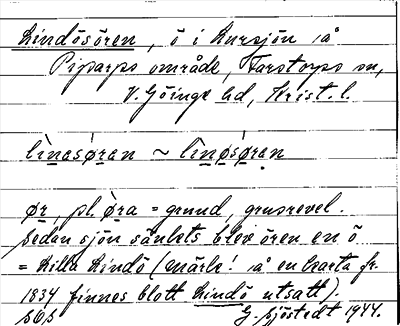 Lindösören, ö i Lursjön å
Pipærps område, Farstorps sn,
V. Göinge hd, Krist. l.
lìnasǿran ~ lìnøsǿran
ør, pl. ø̀ra = grund, grusrevel.
Sedan sjön sänkets blev ören en ö
= Lilla Lindö (märk! å en karta fr.
1834 finnes blott Lindö utsatt).
G. Sjöstedt 1944.